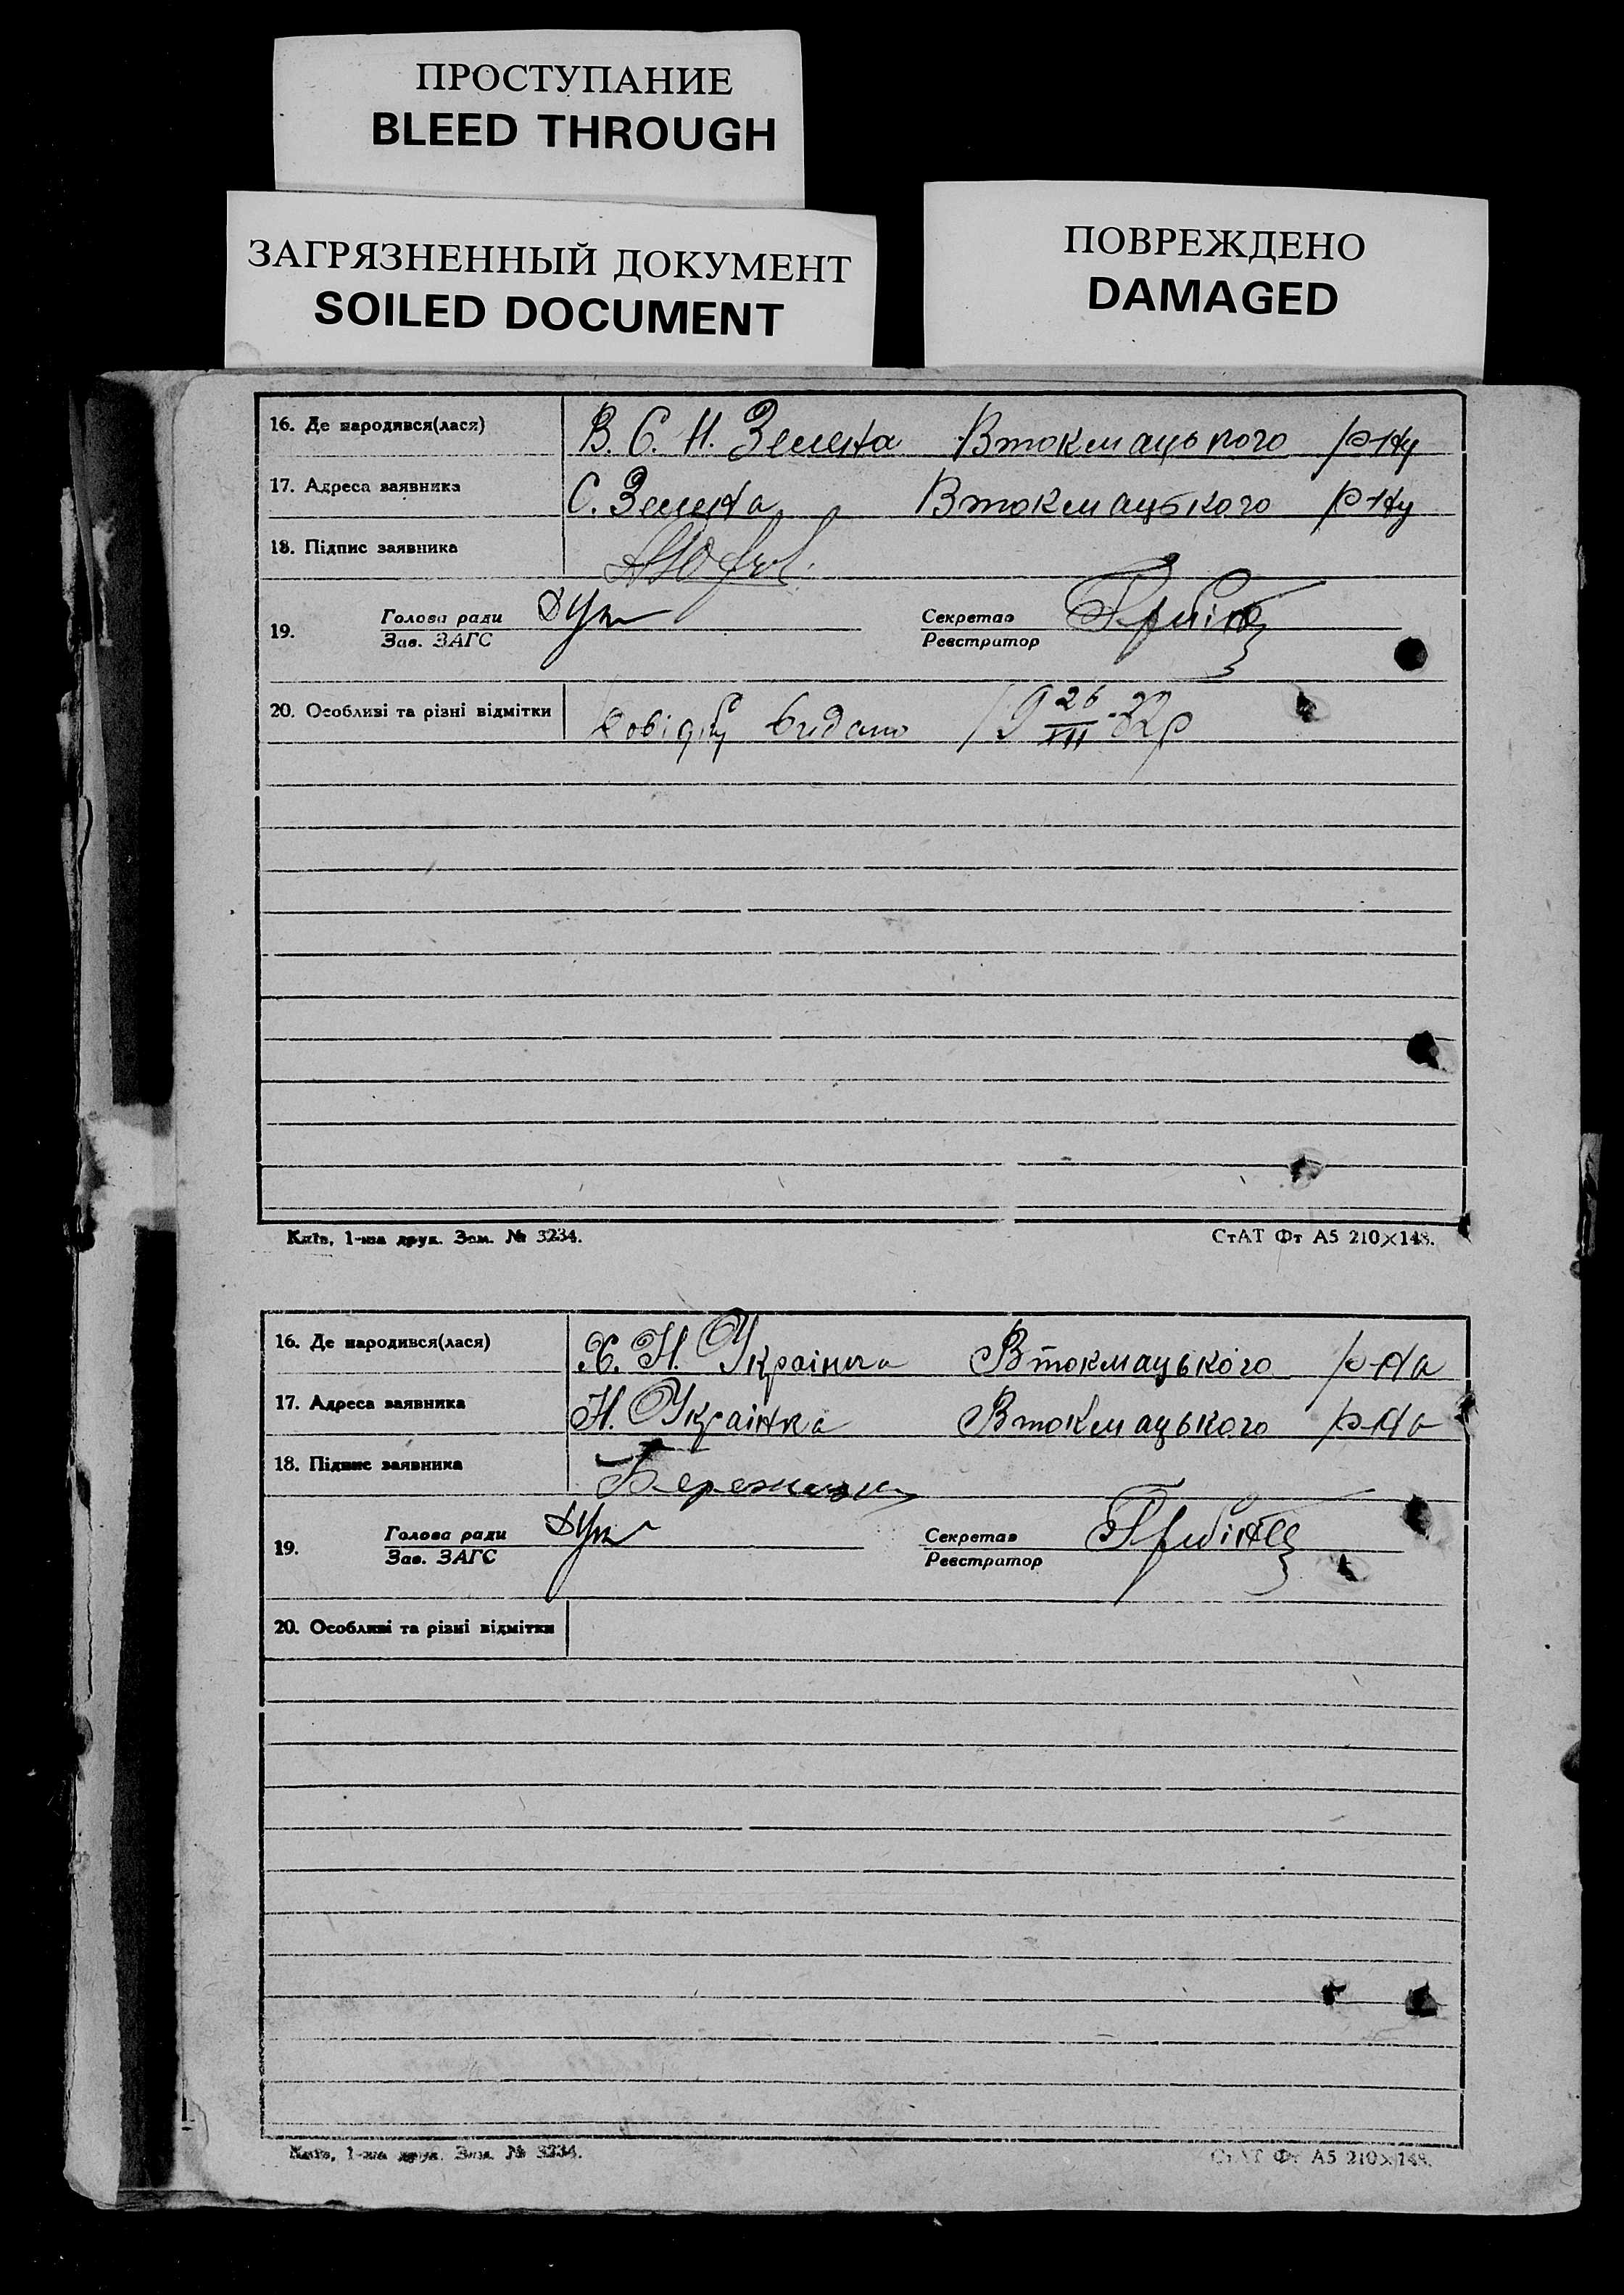 ПРОСТУПАНИЕ
BLEED THROUGH
ЗАГРЯЗНЕННЫЙ ДОКУМЕНТ
SOILED DOCUMENT
ПОВРЕЖДЕНО
DAMAGED
16. Де народився(лася) В. С. Н. Зелена Втокмацького р-ну
17. Адреса заявника С. Зелена Втокмацького р-ну
18. Підпис заявника
19. Голова ради Секретар
Зав. ЗАГС Реєстратор
20. Особливі та різні відмітки Довідку видано 19 26/XII 32р
Київ, 1-ша друк. Зам. № 3234. СтАТ Фт А5 210×148.
16. Де народився(лася) Х. Н. Українка Втокмацького р-на
17. Адреса заявника Н. Українка Втокмацького р-на
18. Підпис заявника
19. Голова ради Секретар
Зав. ЗАГС Реєстратор
20. Особливі та різні відмітки
Київ, 1-ша друк. Зам. № 3234. СтАТ Фт А5 210×148.